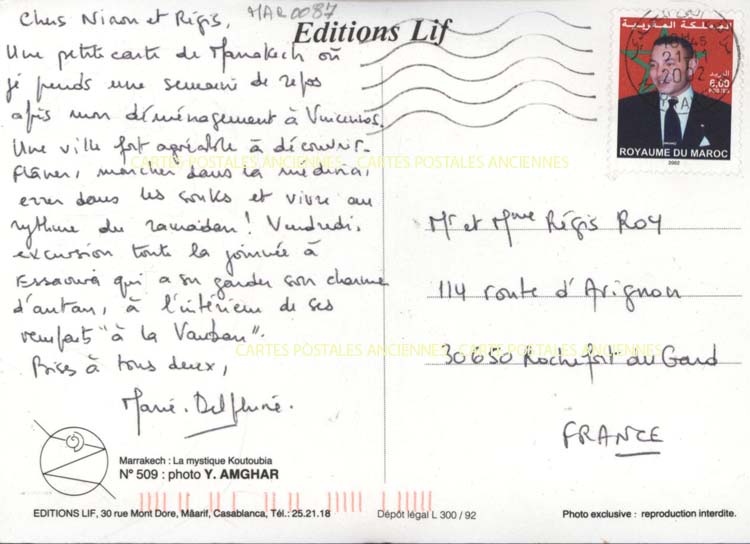 Chers Ninon et Régis,
MAR0087
Editions Lif
Une petite carte de Marrakech où
je prends une semaine de repos
après mon déménagement à Vincennes.
Une ville fort agréable à découvrir.
Flâner, marcher dans la médina,
errer dans les souks et vivre au
rythme du ramadan! Vendredi,
excursion toute la journée à
Essaouira qui a su garder son charme
d'antan, à l'intérieur de ses
remparts "à la Vauban".
Bises à tous deux,
Marie-Delphine.
المملكة المغربية
18H45
21-11
2002
البريد
6,00
POSTES
ROYAUME DU MAROC
2002
Mr et Mme Régis ROY
114 route d'Avignon
30650 Rochefort du Gard
FRANCE
CARTES POSTALES ANCIENNES CARTES POSTALES ANCIENNES
CARTES POSTALES ANCIENNES CARTES POSTALES ANCIENNES
Marrakech : La mystique Koutoubia
N° 509 : photo Y. AMGHAR
EDITIONS LIF, 30 rue Mont Dore, Mâarif, Casablanca, Tél.: 25.21.18
Dépôt légal L 300 / 92
Photo exclusive : reproduction interdite.